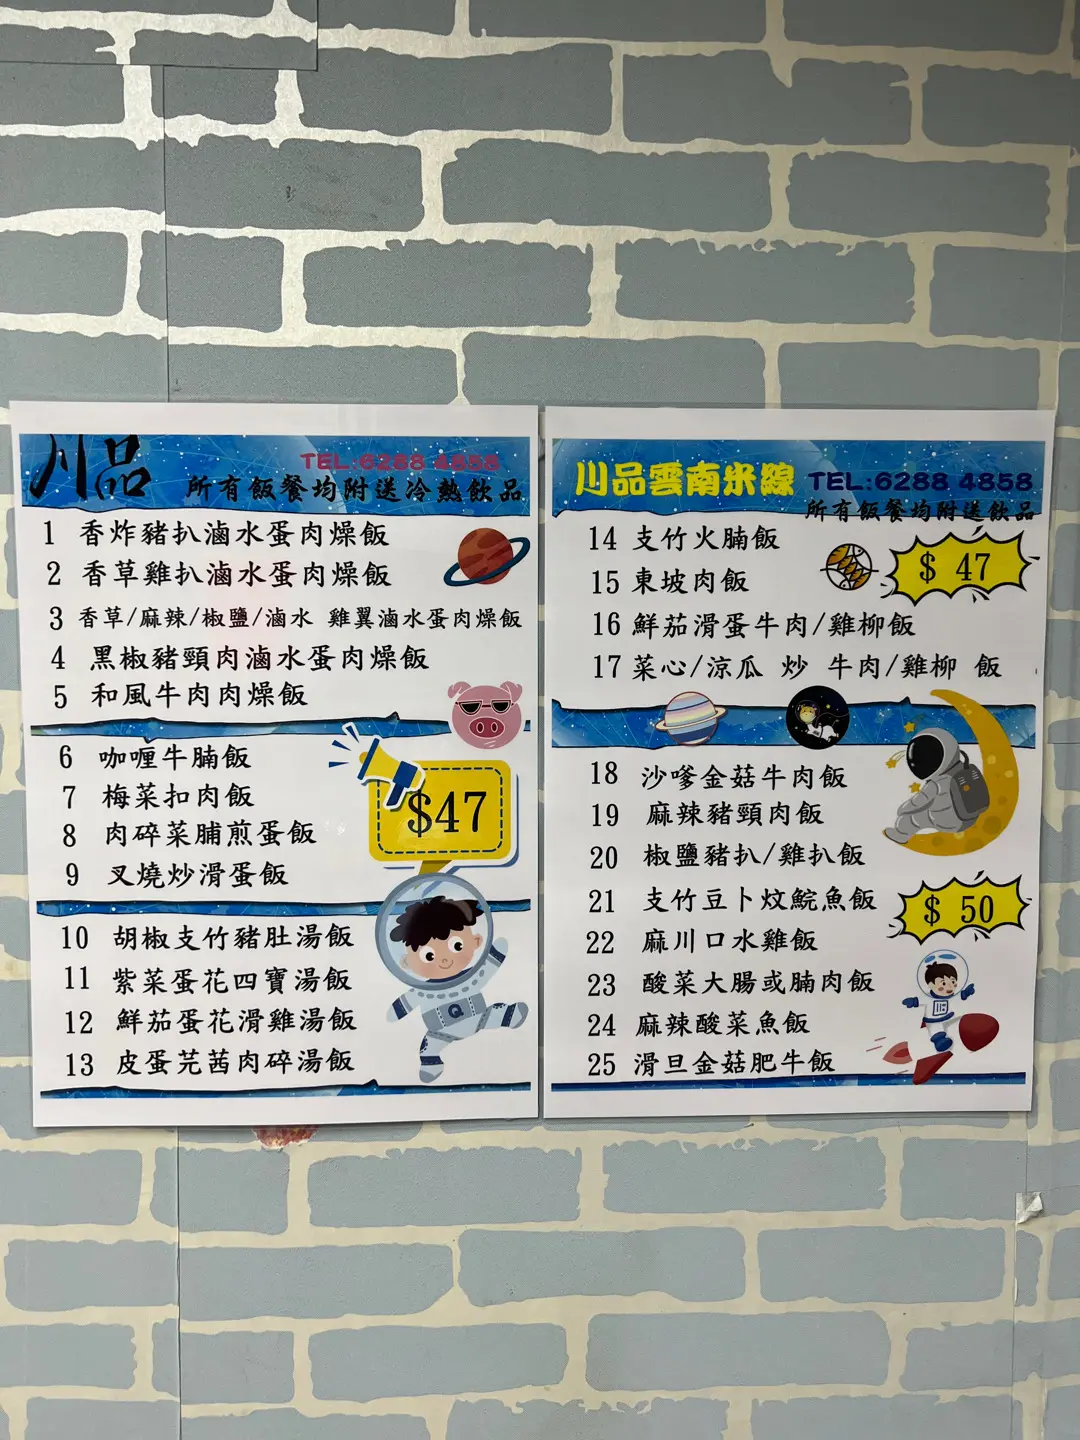 川品
TEL:6288 4858
所有飯餐均附送冷熱飲品
1 香炸豬扒滷水蛋肉燥飯
2 香草雞扒滷水蛋肉燥飯
3 香草/麻辣/椒鹽/滷水 雞翼滷水蛋肉燥飯
4 黑椒豬頸肉滷水蛋肉燥飯
5 和風牛肉肉燥飯
6 咖喱牛腩飯
7 梅菜扣肉飯
8 肉碎菜脯煎蛋飯
9 叉燒炒滑蛋飯
$47
10 胡椒支竹豬肚湯飯
11 紫菜蛋花四寶湯飯
12 鮮茄蛋花滑雞湯飯
13 皮蛋芫茜肉碎湯飯
Q
川品雲南米線 TEL:6288 4858
所有飯餐均附送飲品
14 支竹火腩飯
$ 47
15 東坡肉飯
16 鮮茄滑蛋牛肉/雞柳飯
17 菜心/涼瓜 炒 牛肉/雞柳 飯
18 沙嗲金菇牛肉飯
19 麻辣豬頸肉飯
20 椒鹽豬扒/雞扒飯
21 支竹豆卜炆鯇魚飯
$ 50
22 麻川口水雞飯
23 酸菜大腸或腩肉飯
24 麻辣酸菜魚飯
25 滑旦金菇肥牛飯